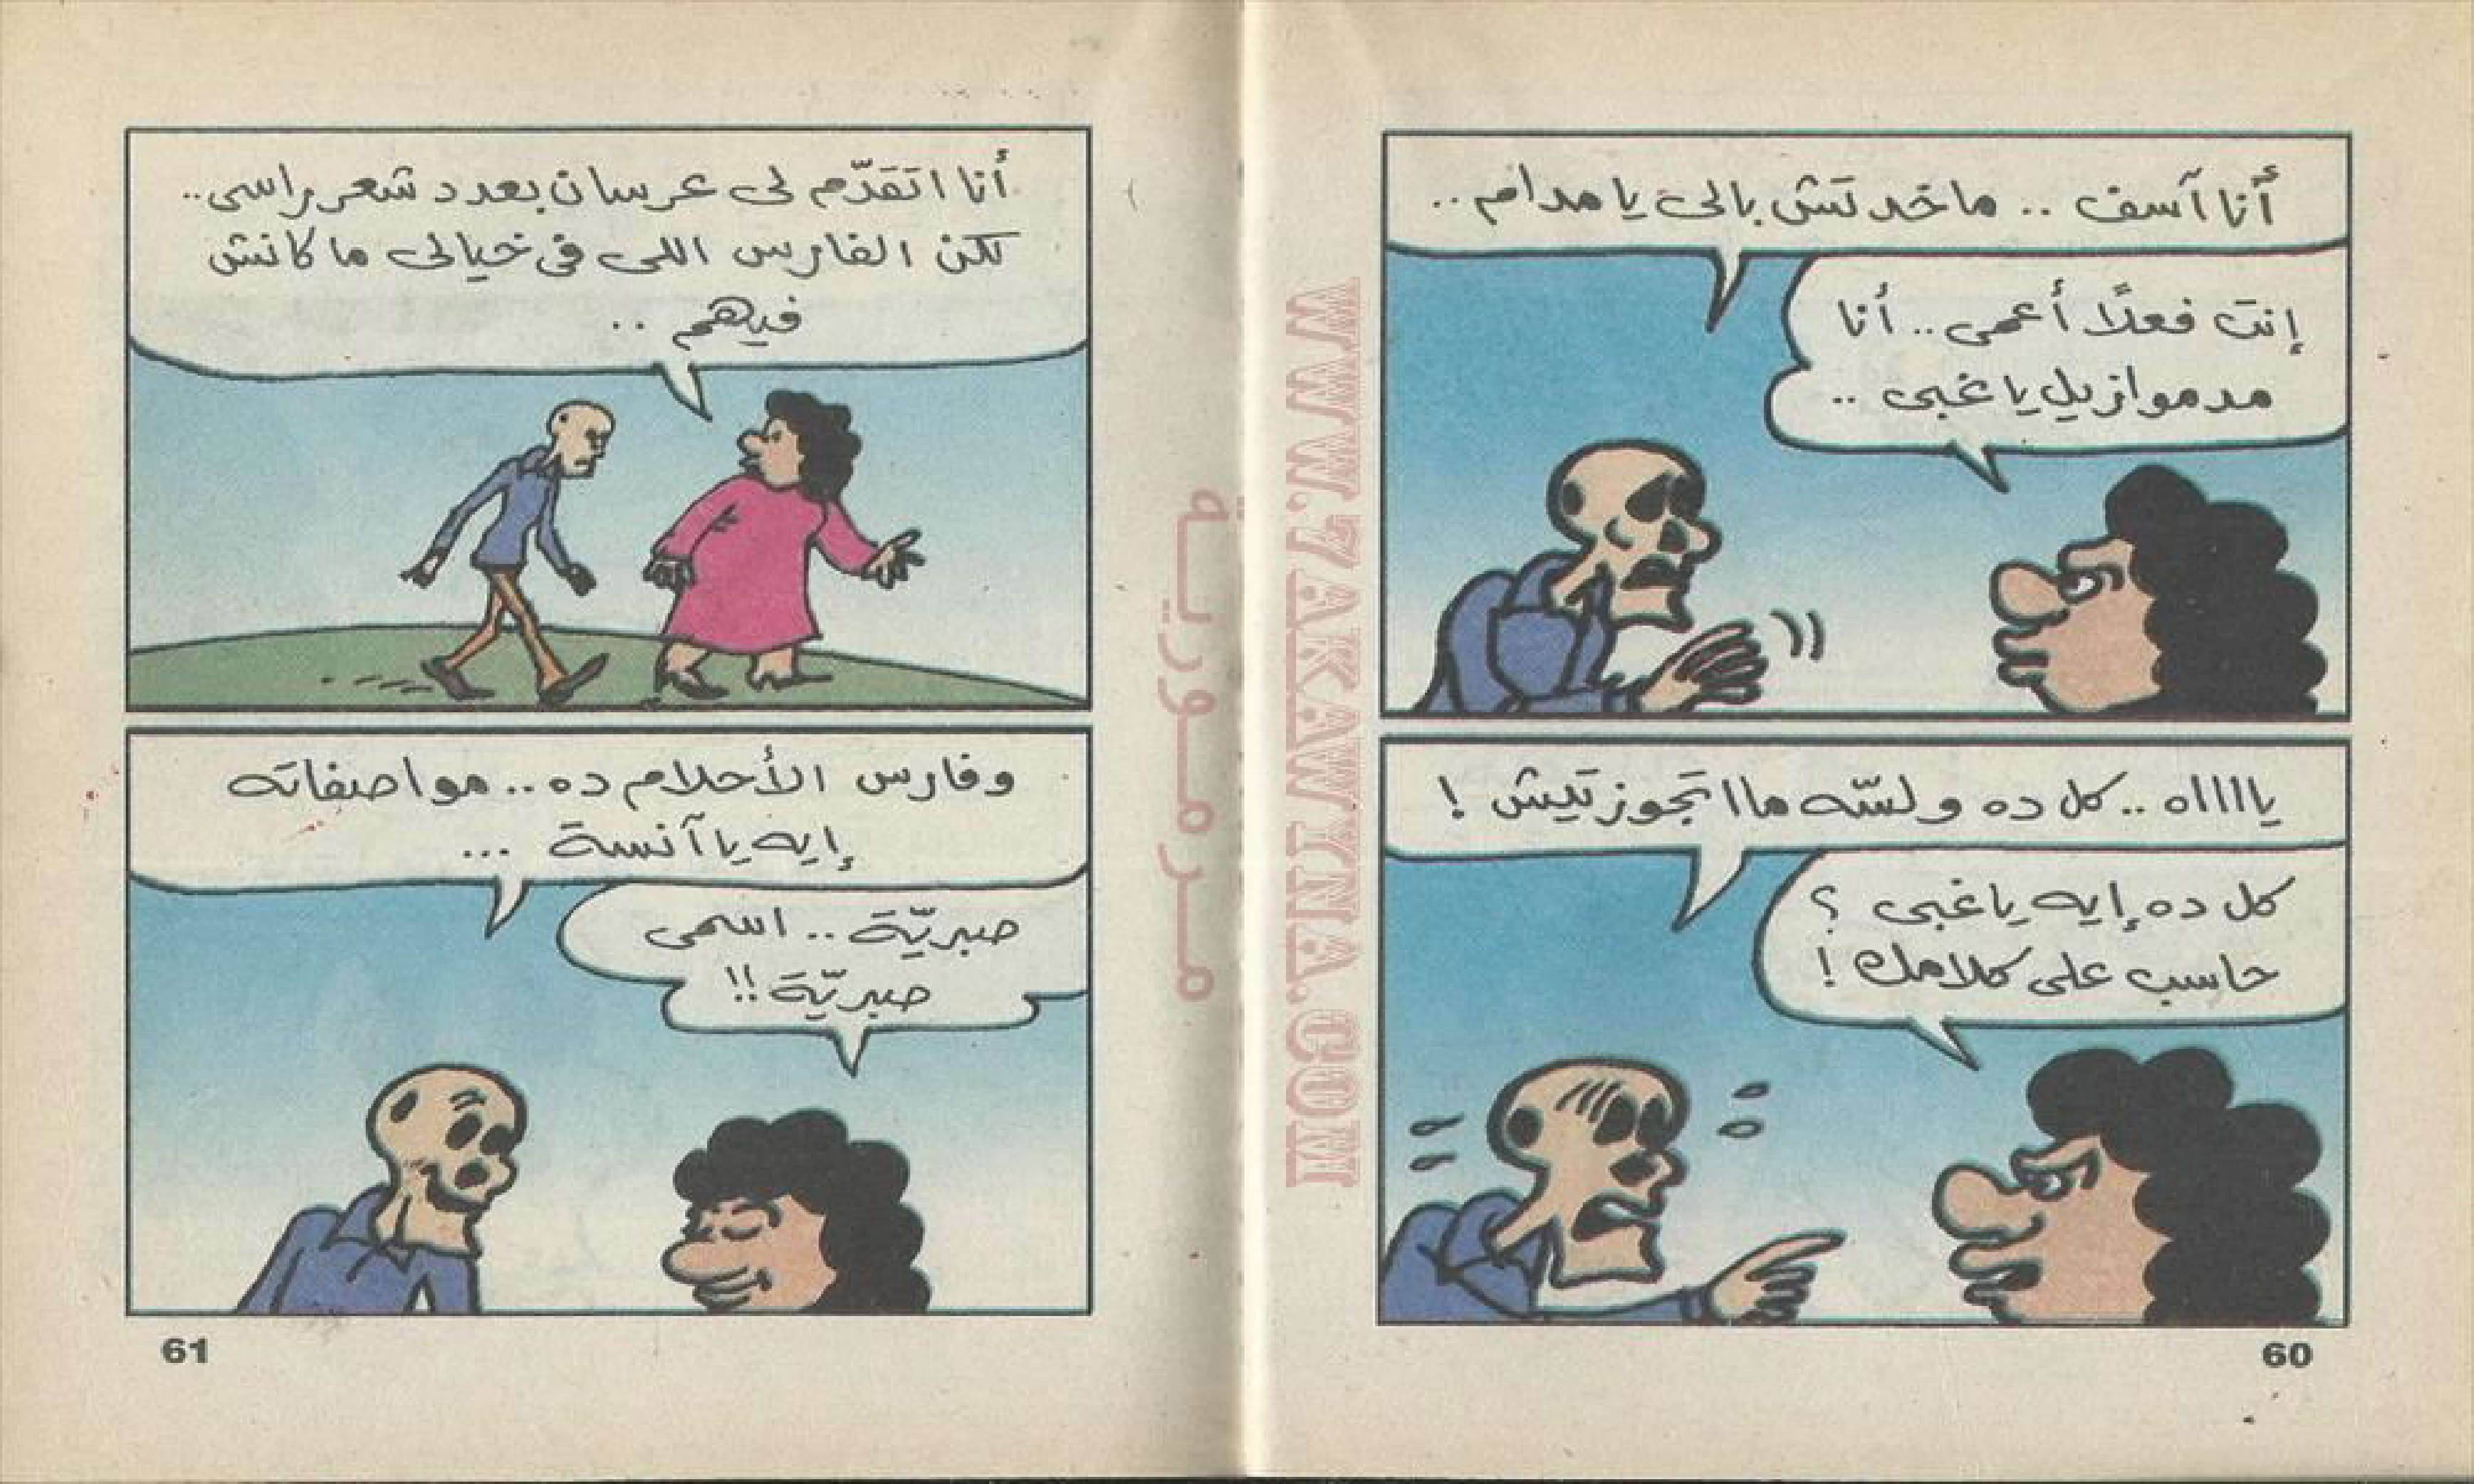 أنا آسف .. ماخدتش بالى يا مدام ..
إنت فعلًا أعمى .. أنا
مدموازيل يا غبى ..
يااااه .. كل ده ولسّه ما اتجوزتيش !
كل ده إيه يا غبى ؟
حاسب على كلامك !
60
أنا اتقدّم لى عرسان بعدد شعر راسى ..
لكن الفارس اللى فى خيالى ما كانش
فيهم ..
وفارس الأحلام ده .. مواصفاته
إيه يا آنسة ...
صبريّة .. اسمى
صبريّة !!
61
WWW.7AKAWINA.COM
مرمورية